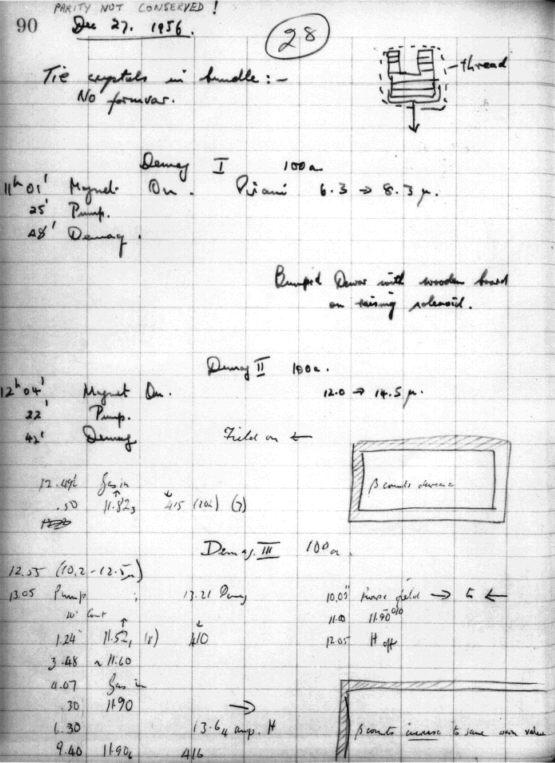 PARITY NOT CONSERVED !
90 Dec 27. 1956.
28
Tie crystals in bundle :-
No formvar.
thread
Demag I 100a.
11h 01' Magnet On. Pirani 6.3 → 8.3 μ.
25' Pump.
48' Demag.
Bumped Dewar with wooden board
on raising solenoid.
Demag II 100a.
12h 04' Magnet On. 12.0 → 14.5 μ.
22' Pump.
42' Demag Field on ←
12.49½ Gas in
.50 11.82₃ 415
β counts
Demag. III 100a.
12.55 (10.2 - 12.5μ)
13.05 Pump 13.21 Demag
field → to ←
11.90
1.24 11.52, 410
12.05 H off
3.48 ~11.60
4.07 Gas in
.30 11.90 →
6.30 13.64 amp. H
β counts increase to same own value
9.40 11.90₆ 416